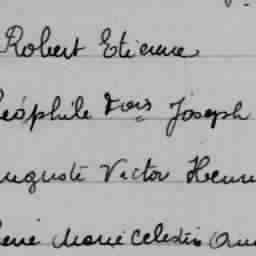 Robert Etienne
éophile Fois Joseph
uguste Victor Henri
ené Marie Celestin